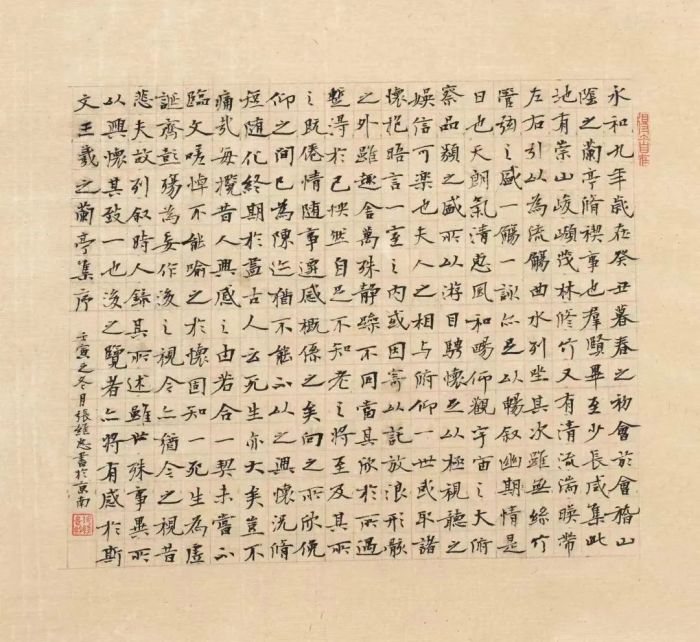 永和九年歲在癸丑暮春之初會於會稽山
陰之蘭亭脩禊事也羣賢畢至少長咸集此
地有崇山峻嶺茂林修竹又有清流湍暎帶
左右引以為流觴曲水列坐其次雖無絲竹
管弦之盛一觴一詠亦足以暢叙幽期情是
日也天朗氣清惠風和暢仰觀宇宙之大俯
察品類之盛所以游目騁懷足以極視聽之
娛信可樂也夫人之相与俯仰一世或取諸
懷抱晤言一室之內或因寄以託放浪形骸
之外雖趣舍萬殊靜躁不同當其欣於所過
暫得於己怏然自足不知老之將至及其所
之既倦情隨事遷感概係之矣向之所欣俛
仰之間已為陳迹猶不能不以之興懷況脩
短隨化終期於盡古人云死生亦大矣豈不
痛哉每攬昔人興感之由若合一契未嘗不
臨文嗟悼不能喻之於懷固知一死生為虛
誕齊彭殤為妄作後之視今亦猶今之視昔
悲夫故列叙時人錄其所述雖世殊事異所
以興懷其致一也後之覽者亦將有感於斯
文王羲之蘭亭集序
壬寅之冬月張維忠書於京南